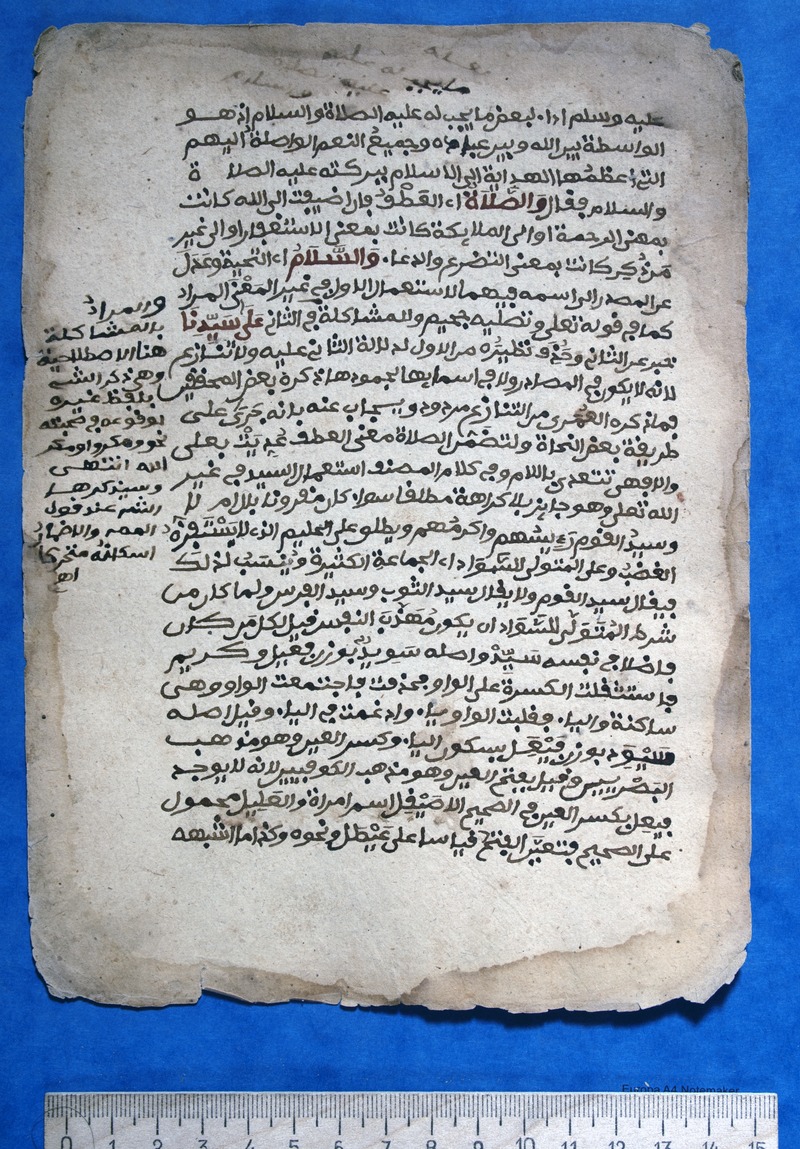 عليه وسلم اداء لبعض ما يجب له عليه الصلاة والسلام إذ هـو
الواسطة بين الله وبين عباده وجميع النعم الواصلة اليهم
التي أعظمها الهداية إلى الاسلام ببركته عليه الصلا ة
والسلام فقال والصلاة أي العطف فإن اضيفت الى الله كانت
بمعنى الرحمة او الى الملايكة كانت بمعنى الاستغفار او الى غير
من ذكر كانت بمعنى التضرع والدعاء والسلام اي التحية وعدل
عن المصدر الى اسمه فيهما لاستعمال الاول في غير المعنى المراد
كما في قوله تعلى وتصلية جحيم وللمشاكلة في الثاني على سيدنا
خبر عن الثاني وحذف نظيره من الاول لدلالة الثاني عليه ولا تنازع
لانه لا يكون في المصادر ولا في اسمايها لجمودها ذكره بعض المحققين
فما ذكره من التنازع مردود ويجاب عنه بانه جرى على
طريقة بعض النحاة ولتضمن الصلاة معنى العطف عديت بعلى
والا فهي تتعدى باللام وفي كلام المصنف استعمال السيد في غير
الله تعلى وهو جايز بلا كراهة مطلقا سواء كان مقرونا بلام ام لا
وسيد القوم رئيسهم واكرمهم ويطلق على الحليم الذي لا يستفزه
الغضب وعلى المتولى للسواد اي الجماعة الكثيرة وينسب لذلك
فيقال سيد القوم ولا يقال سيد الثوب وسيد الفرس ولما كان من
شرط المتولى للسواد ان يكون مهذب النفس قيل لكل من كان
فاضلا في نفسه سيد واصله سويد بوزن فعيل وكريم
فاستثقلت الكسرة على الواو فحذفت فاجتمعت الواو وهي
ساكنة والياء فقلبت الواو ياء وادغمت في الياء وقيل اصله
سيود بوزن فيعل بسكون الياء وكسر العين وهو مذهب
البصريين وقيل بفتح العين وهو مذهب الكوفيين لانه لا يوجد
فيعل بكسر العين في الصحيح الا صيقل اسم امراة والعليل محمول
على الصحيح فتعين الفتح قياسا على عيطل ونحوه وكذا ما اشبهه
والمراد
بالمشاكلة
هنا الاصطلاحية
وهي ذكر الشيء
بلفظ غيره
لوقوعه في صحبته
نحو ومكروا ومكر
الله انتهى
وسيذكرها
الشر عند قول
المصـ
اسكانه
اهـ